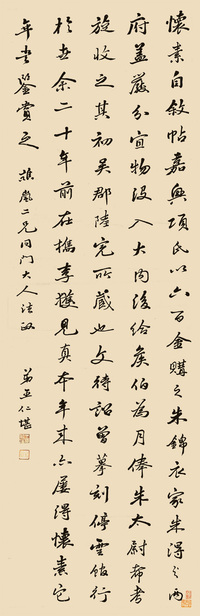 懷素自敘帖嘉興項氏以六百金購之朱錦衣家朱得之內
府蓋嚴分宜物沒入大內後給侯伯為月俸朱太尉希孝
旋收之其初吳郡陸完所藏也文待詔曾摹刻停雲館行
於世余二十年前在檇李獲見真本年來亦屢得懷素它
年書鑒賞之
二兄同門大人法政
弟王仁堪